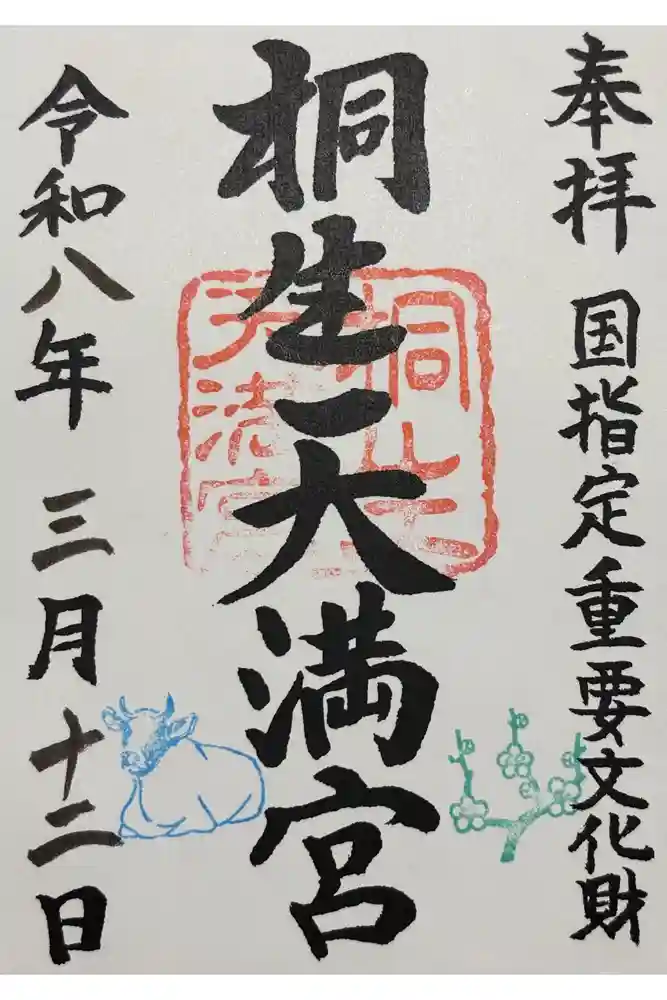 奉拝 国指定重要文化財
桐生天満宮
桐生
天満宮
令和八年 三月十二日